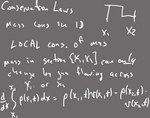 Conservation Laws
Mass cons. in 1D
x₁ x₂
LOCAL cons. of mass
mass in section [x₁, x₂] can only
change by gas flowing across
x₁ or x₂
d/dt ∫ρ(x,t)dx = ρ(x₁,t)v(x₁,t) - ρ(x₂,t)·
v(x₂,t)